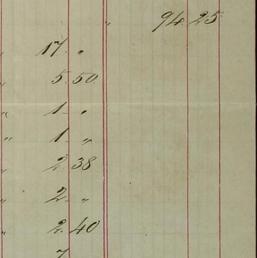 " 94 25
" 17 "
" 5 50
" 1 "
" 1 "
" 2 38
" 2 "
" 2 40
7